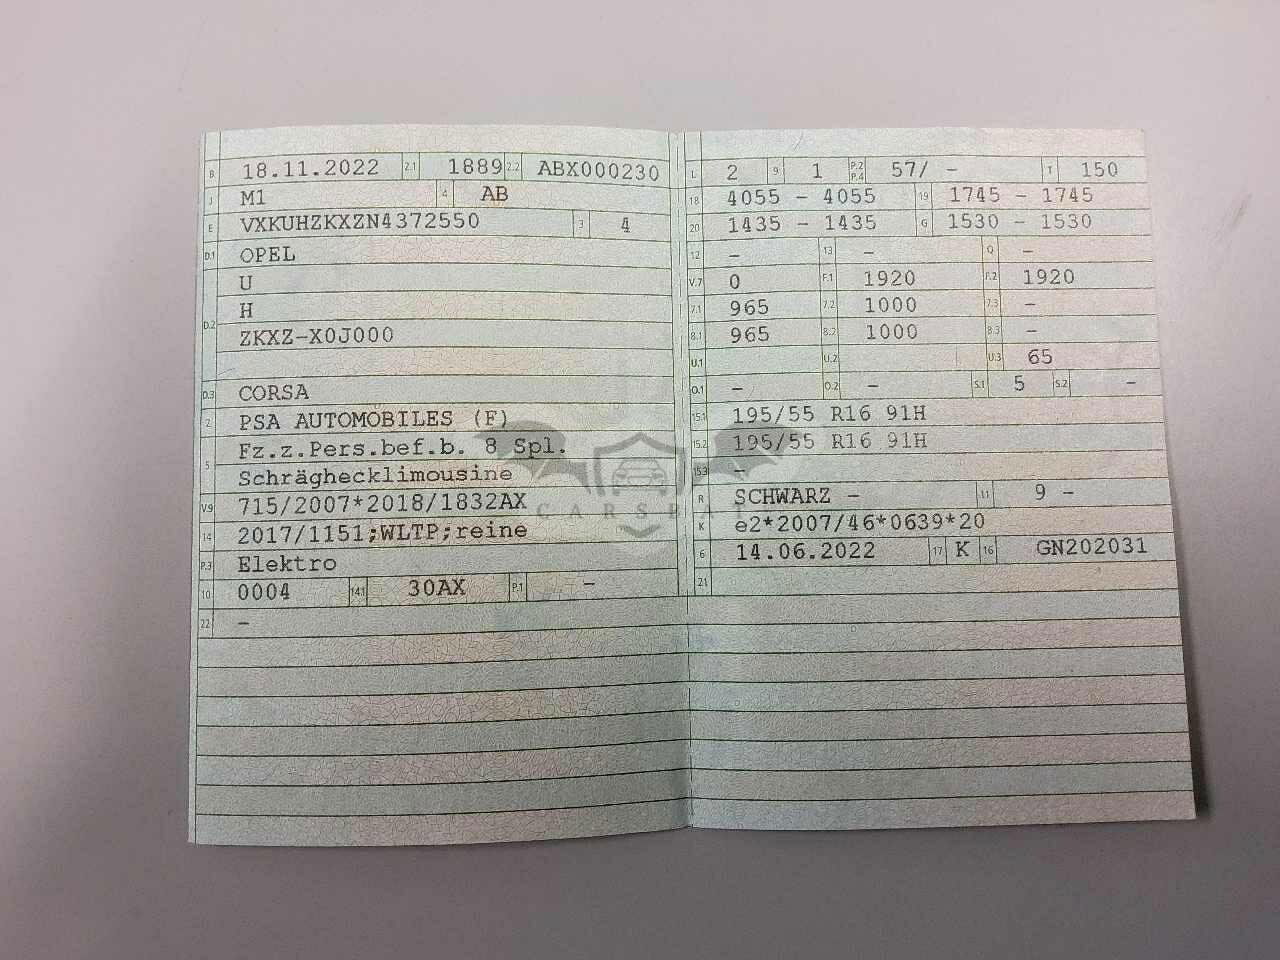 B 18.11.2022 2.1 1889 2.2 ABX000230
J M1 4 AB
E VXKUHZKXZN4372550 3 4
D.1 OPEL
U
H
D.2 ZKXZ-X0J000
D.3 CORSA
2 PSA AUTOMOBILES (F)
5 Fz.z.Pers.bef.b. 8 Spl.
Schräghecklimousine
V.9 715/2007*2018/1832AX
14 2017/1151;WLTP;reine
P.3 Elektro
10 0004 14.1 30AX P.1 -
22 -
L 2 9 1 P.2 P.4 57/ - T 150
18 4055 - 4055 19 1745 - 1745
20 1435 - 1435 G 1530 - 1530
12 - 13 - Q -
V.7 0 F.1 1920 F.2 1920
7.1 965 7.2 1000 7.3 -
8.1 965 8.2 1000 8.3 -
U.1 U.2 U.3 65
O.1 - O.2 - S.1 5 S.2 -
15.1 195/55 R16 91H
15.2 195/55 R16 91H
15.3 -
R SCHWARZ - 11 9 -
K e2*2007/46*0639*20
6 14.06.2022 17 K 16 GN202031
21